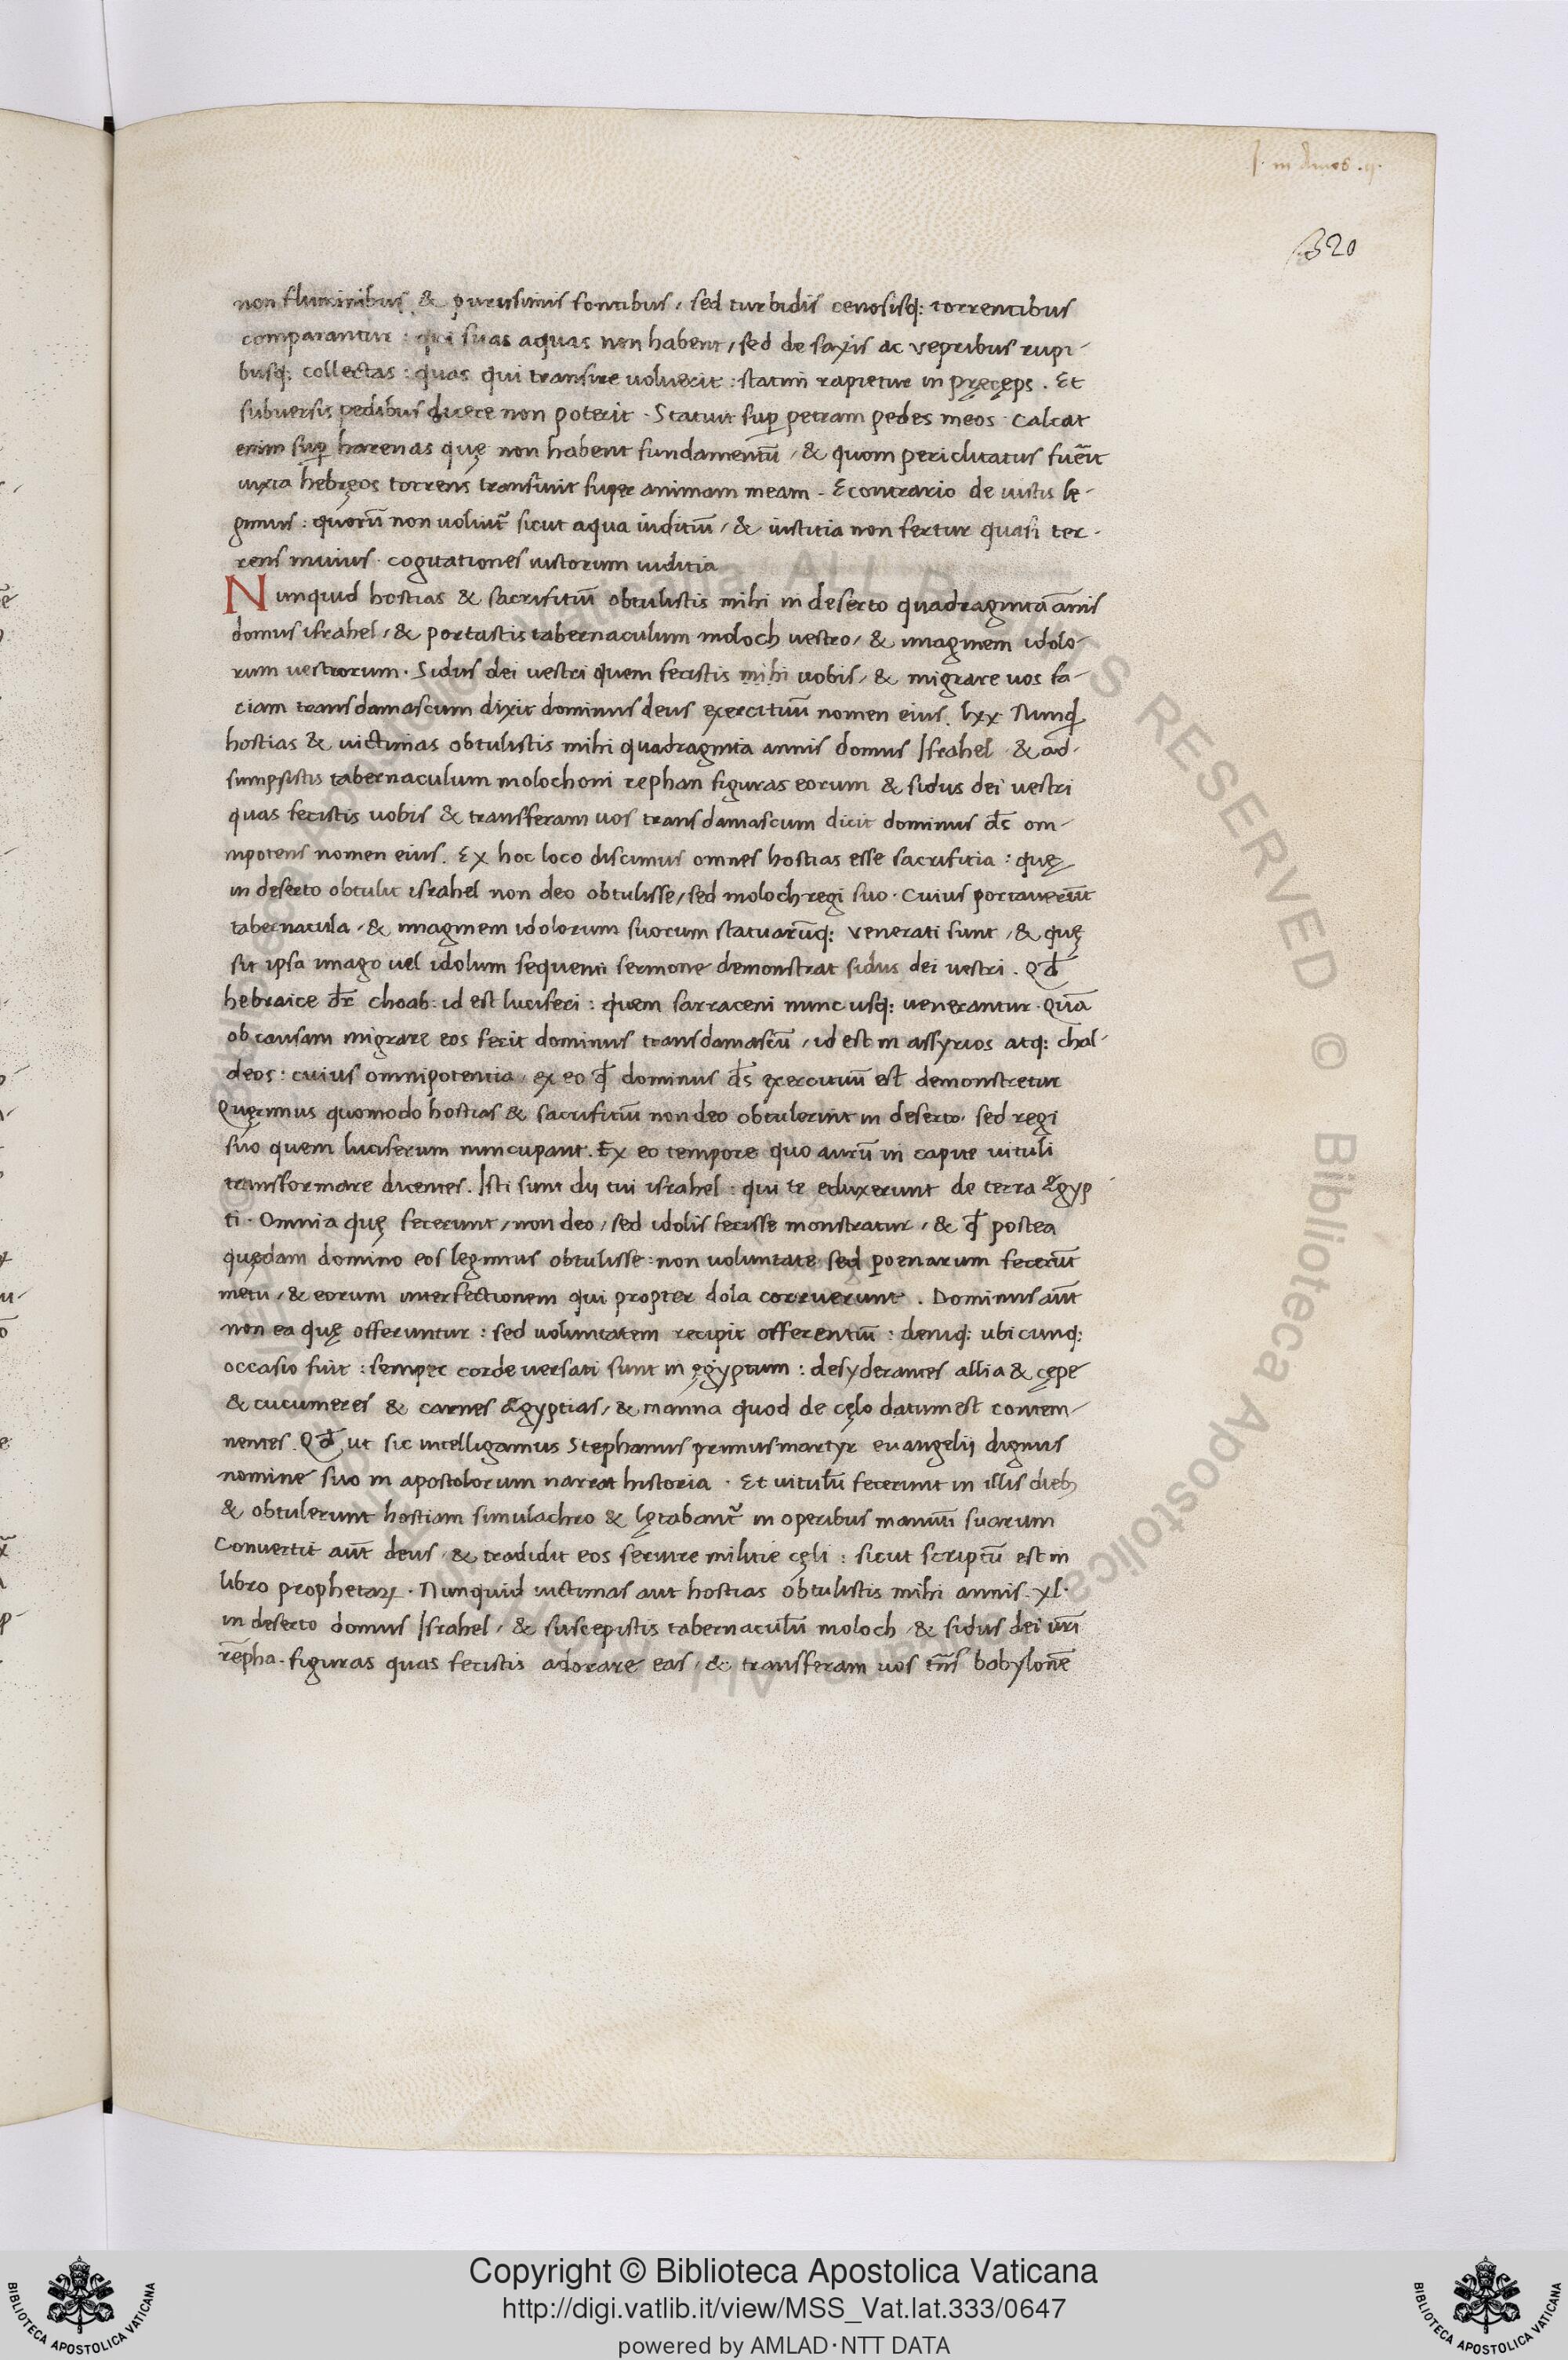 .I. in Amos .q.
320
non fluminibus, & purissimis fontibus, sed turbidis cenosisq: torrentibus
comparantur: qui suas aquas non habent, sed de saxis ac vepribus rupi-
busq: collectas: quas qui transire uoluerit: statim rapietur in pręceps. Et
subuersis pedibus dicere non poterit. Statuit sup̱ petram pedes meos. Calcat
enim sup̱ harenas quę non habent fundamentū, & quom periclitatus fuēit
iuxta hebręos torrens transiuit super animam meam. Econtrario de iustis le-
gimus: quorū non voluit᷑ sicut aqua iuditiū, & iustitia non fertur quasi tor-
rens inuius. cogitationes iustorum iuditia
Nunquid hostias & sacrifitiū obtulistis mihi in deserto quadraginta annis
domus israhel, & portastis tabernaculum moloch uestro, & imaginem idolo-
rum uestrorum. Sidus dei uestri quem fecistis mihi uobis, & migrare uos fa-
ciam trans damascum dixit dominus deus exercituū nomen eius. lxx Nunqđ
hostias & uictimas obtulistis mihi quadraginta annis domus Israhel & ad-
sumpsistis tabernaculum molochoni rephan figuras eorum & sidus dei uestri
quas fecistis uobis & transferam uos trans damascum dicit dominus d̄s om-
nipotens nomen eius. Ex hoc loco discimus omnes hostias esse sacrifitia: quę
in deserto obtulit israhel non deo obtulisse, sed moloch regi suo. Cuius portauerūt
tabernacula, & imaginem idolorum suorum statuarūq: venerati sunt, & quę
sit ipsa imago uel idolum sequenti sermone demonstrat sidus dei uestri. Qđ
hebraice dr̄ choab: id est luciferi: quem sarraceni nunc usq: uenerantur. Quā
ob causam migrare eos fecit dominus trans damascū, id est in assyrios atq: chal-
deos: cuius omnipotentia, ex eo qđ dominus d̄s exercituū est demonstretur
Quęrimus quomodo hostias & sacrifitiū non deo obtulerint in deserto, sed regi
suo quem luciferum nuncupant. Ex eo tempore quo aurū in capite uituli
transformare dicentes. Isti sunt dij tui israhel: qui te eduxerunt de terra Ægyp
ti. Omnia quę fecerunt, non deo, sed idolis fecisse monstratur, & qđ postea
quędam domino eos legimus obtulisse: non uoluntate sed poenarum fecerūt
metu, & eorum interfectionem qui propter dola corruerunt. Dominus aūt
non ea quę offeruntur: sed uoluntatem recipit offerentiū: deniq: ubicunq:
occasio fuit: semper corde uersati sunt in ęgyptum: desyderantes allia & cępe
& cucumeres & carnes Ægyptias, & manna quod de cęlo datum est contem-
nentes. Qđ ut sic intelligamus Stephanus primus martyr euangelij dignus
nomine suo in apostolorum narrat historia. Et uitulū fecerunt in illis dieb;
& obtulerunt hostiam simulachro & lętabant᷑ in operibus manuū suarum
Conuertit aūt deus, & tradidit eos seruire militie cęli: sicut scriptū est in
libro prophetaꝝ. Nunquid uictimas aut hostias obtulistis mihi annis .xl.
in deserto domus Israhel, & suscepistis tabernaculū moloch & sidus dei ūri
rēpha. figuras quas fecistis adorare eas, & transferam uos trn̄s babylonē
Copyright © Biblioteca Apostolica Vaticana
http://digi.vatlib.it/view/MSS_Vat.lat.333/0647
powered by AMLAD·NTT DATA